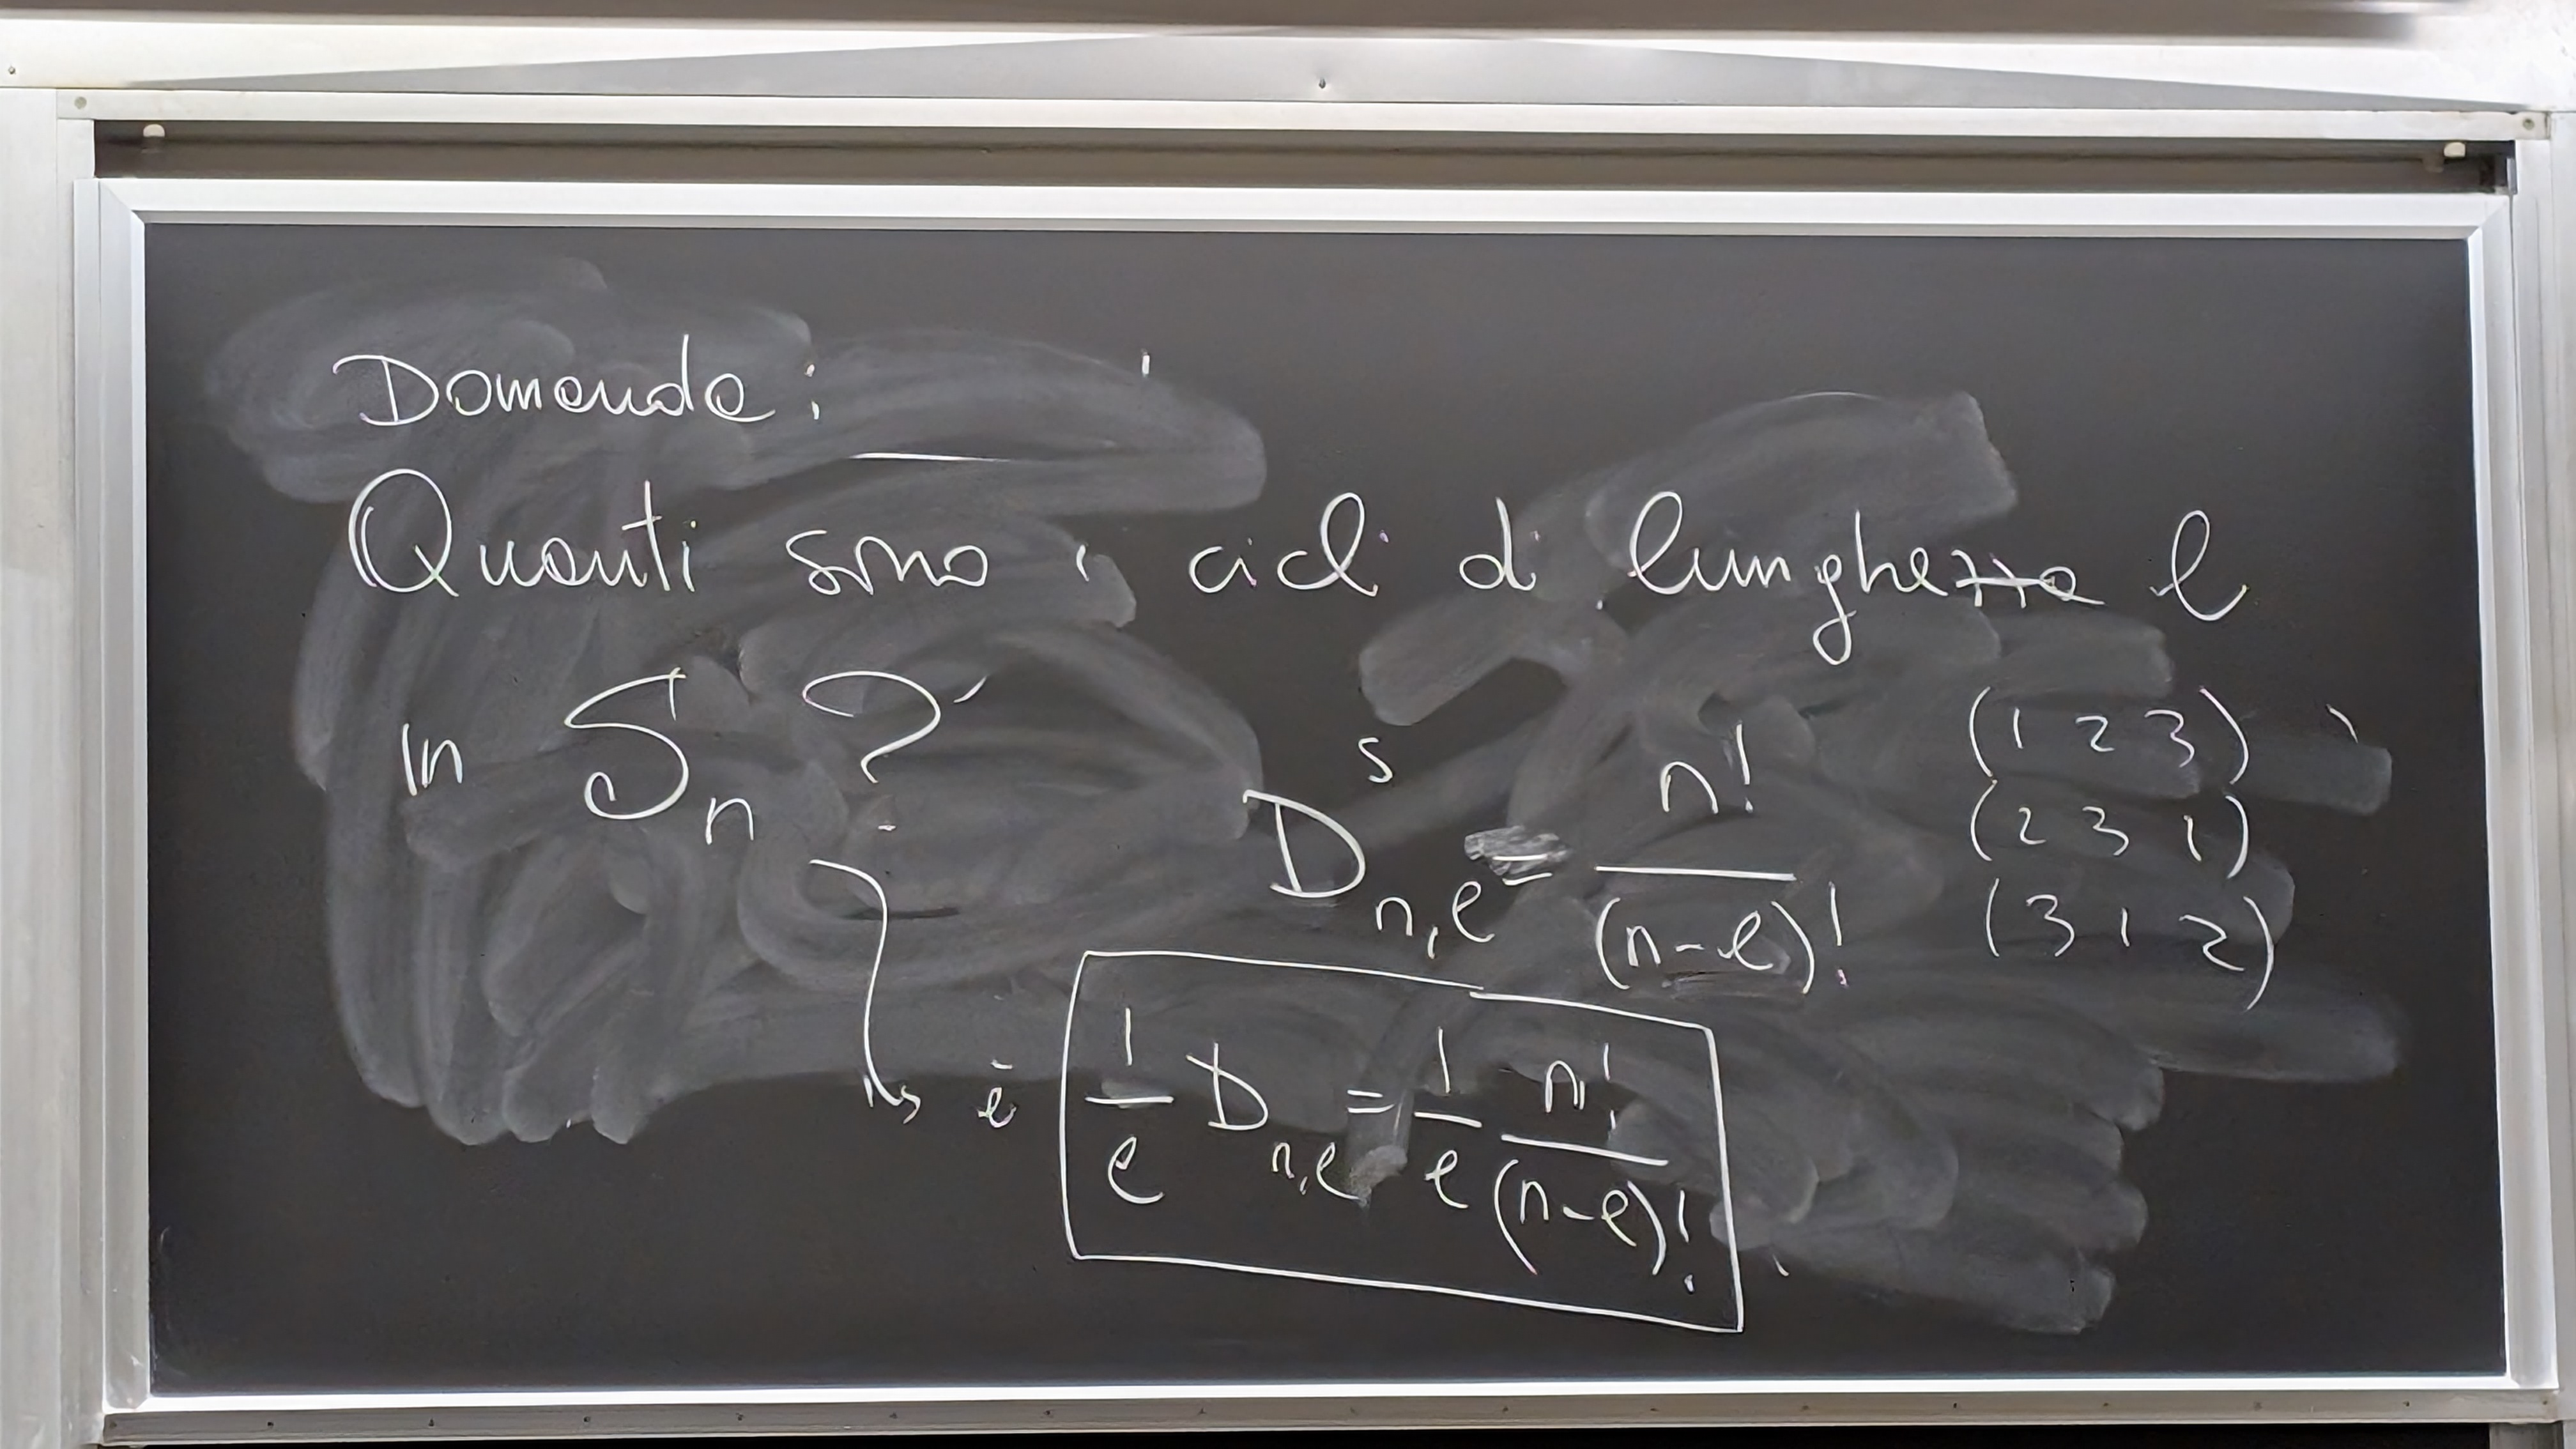 Domanda:
Quanti sono i cicli di lunghezza l
in Sₙ ?
s
Dₙ,ₗ = n! / (n-l)!
(1 2 3)
(2 3 1)
(3 1 2)
è 1/l Dₙ,ₗ = 1/l n! / (n-l)!